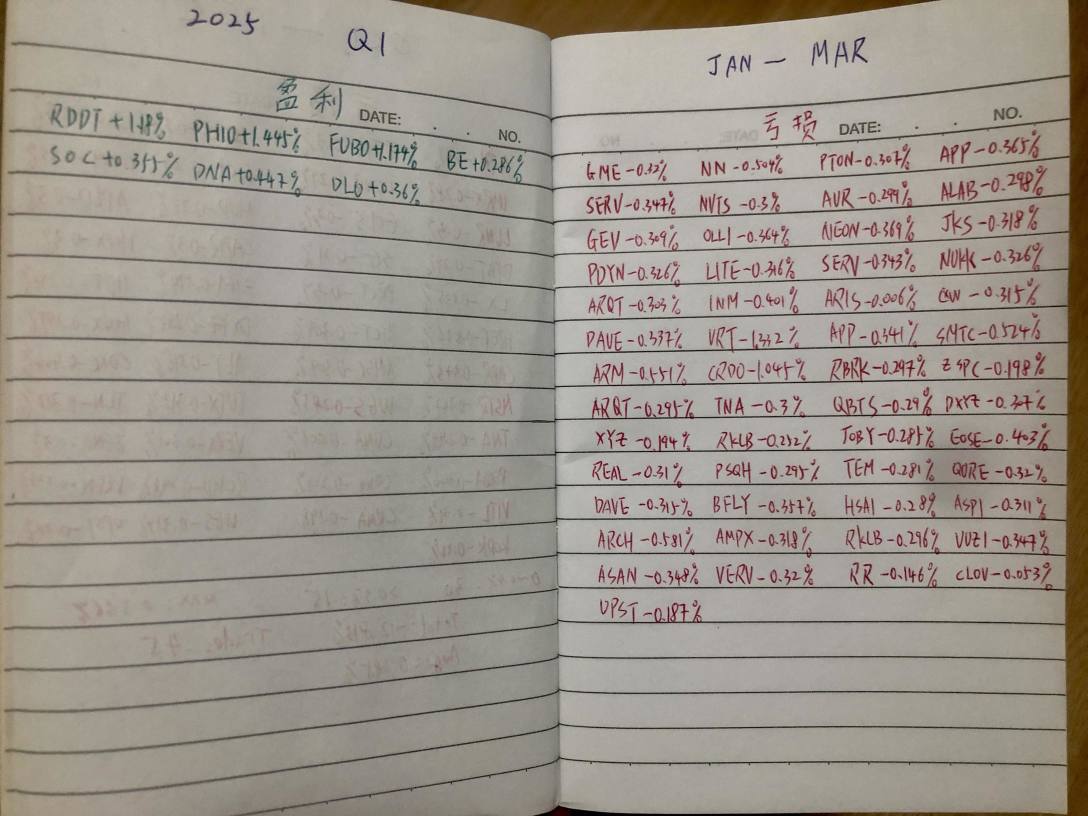 2025 Q1
盈利 DATE: . . NO.
RDDT +1.18% PHIO +1.445% FUBO +1.174% BE +0.286%
SOC +0.355% DNA +0.447% DLO +0.36%
JAN — MAR
亏损 DATE: . . NO.
GME -0.32% NN -0.504% PTON -0.307% APP -0.365%
SERV -0.347% NVTS -0.3% AUR -0.299% ALAB -0.298%
GEV -0.309% OLLI -0.364% NEON -0.369% JKS -0.318%
PDYN -0.326% LITE -0.316% SERV -0.343% NUKK -0.326%
ARQT -0.303% INM -0.401% ARIS -0.006% -0.315%
DAVE -0.337% VRT -1.332% APP -0.341% SMTC -0.524%
ARM -0.551% CRDO -1.045% RBRK -0.297% ZSPC -0.198%
ARQT -0.295% TNA -0.3% QBTS -0.29% DXYZ -0.347%
XYZ -0.194% RKLB -0.252% JOBY -0.285% EOSE -0.403%
REAL -0.31% PSQH -0.295% TEM -0.281% QURE -0.32%
DAVE -0.315% BFLY -0.357% HSAI -0.28% ASPI -0.311%
ARCH -0.581% AMPX -0.318% RKLB -0.296% VUZI -0.347%
ASAN -0.348% VERV -0.32% RR -0.146% CLOV -0.053%
UPST -0.187%